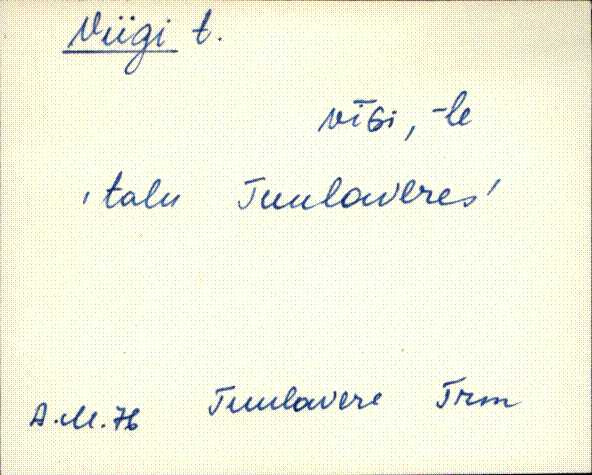 Viigi t.
vīGi, -le
'talu Tuulaveres'
A.M. 76 Tuulavere Trm